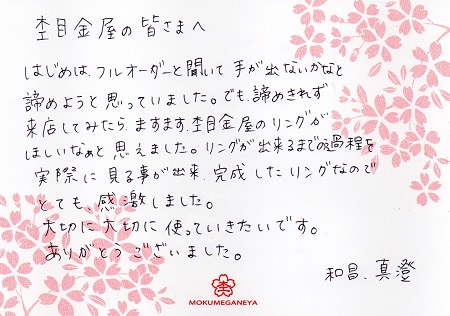 杢目金屋の皆さまへ
はじめは、フルオーダーと聞いて手が出ないかなと
諦めようと思っていました。でも、諦めきれず
来店してみたら、ますます、杢目金屋のリングが
ほしいなぁと思えました。リングが出来るまでの過程を
実際に見る事が出来、完成したリングなので
とても、感激しました。
大切に大切に使っていきたいです。
ありがとうございました。
和昌、真澄
MOKUMEGANEYA